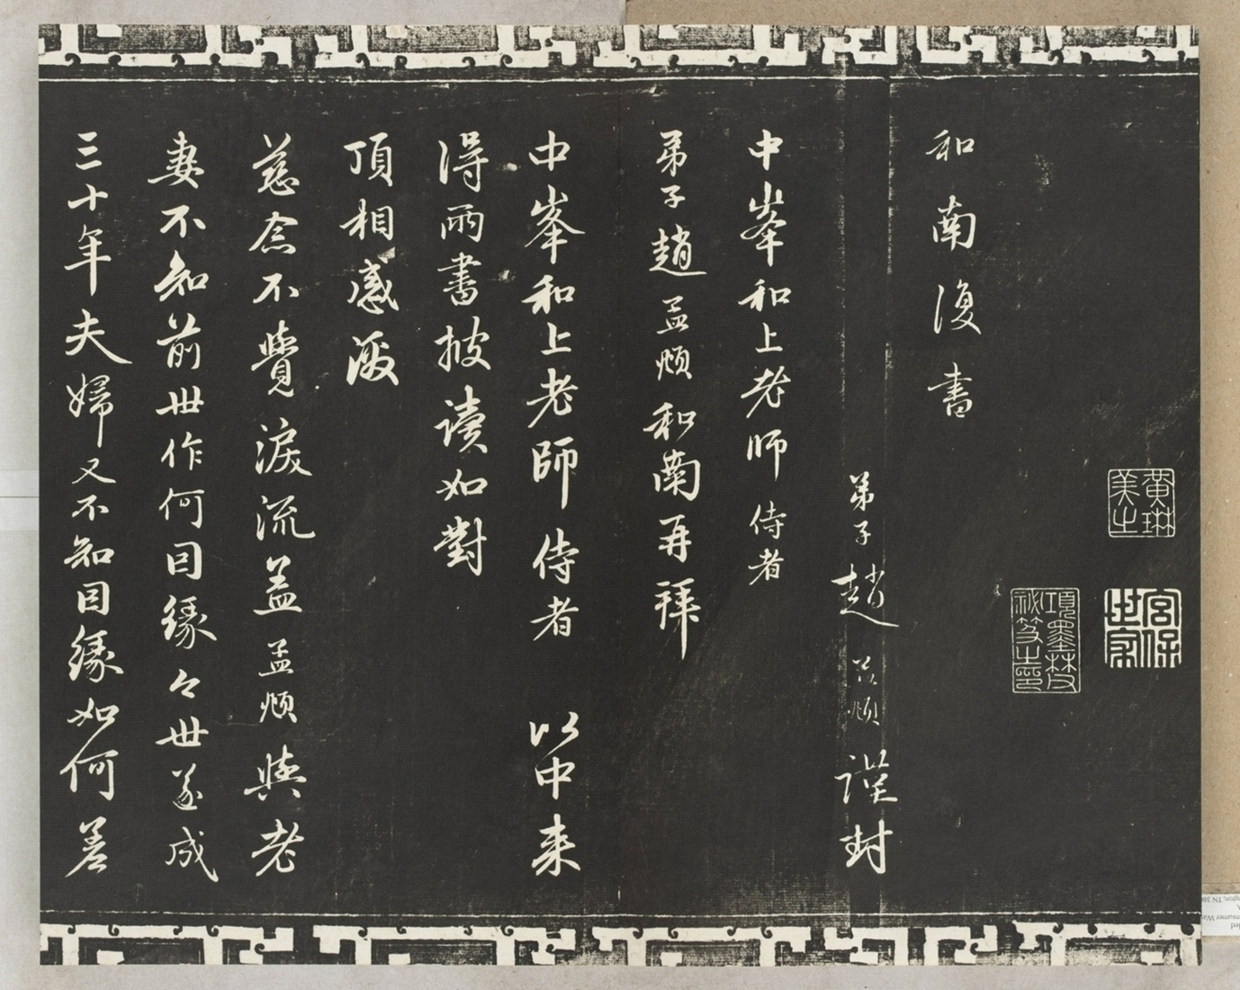 黄琳
美之
宫保
世家
項墨林父
祕笈之印
和南復書
弟子趙孟頫謹封
中峯和上老師侍者
弟子趙孟頫和南再拜
中峯和上老師侍者以中来
得兩書披讀如對
頂相感激
慈念不覺淚流盖孟頫與老
妻不知前世作何因緣今世遂成
三十年夫婦又不知因緣如何差